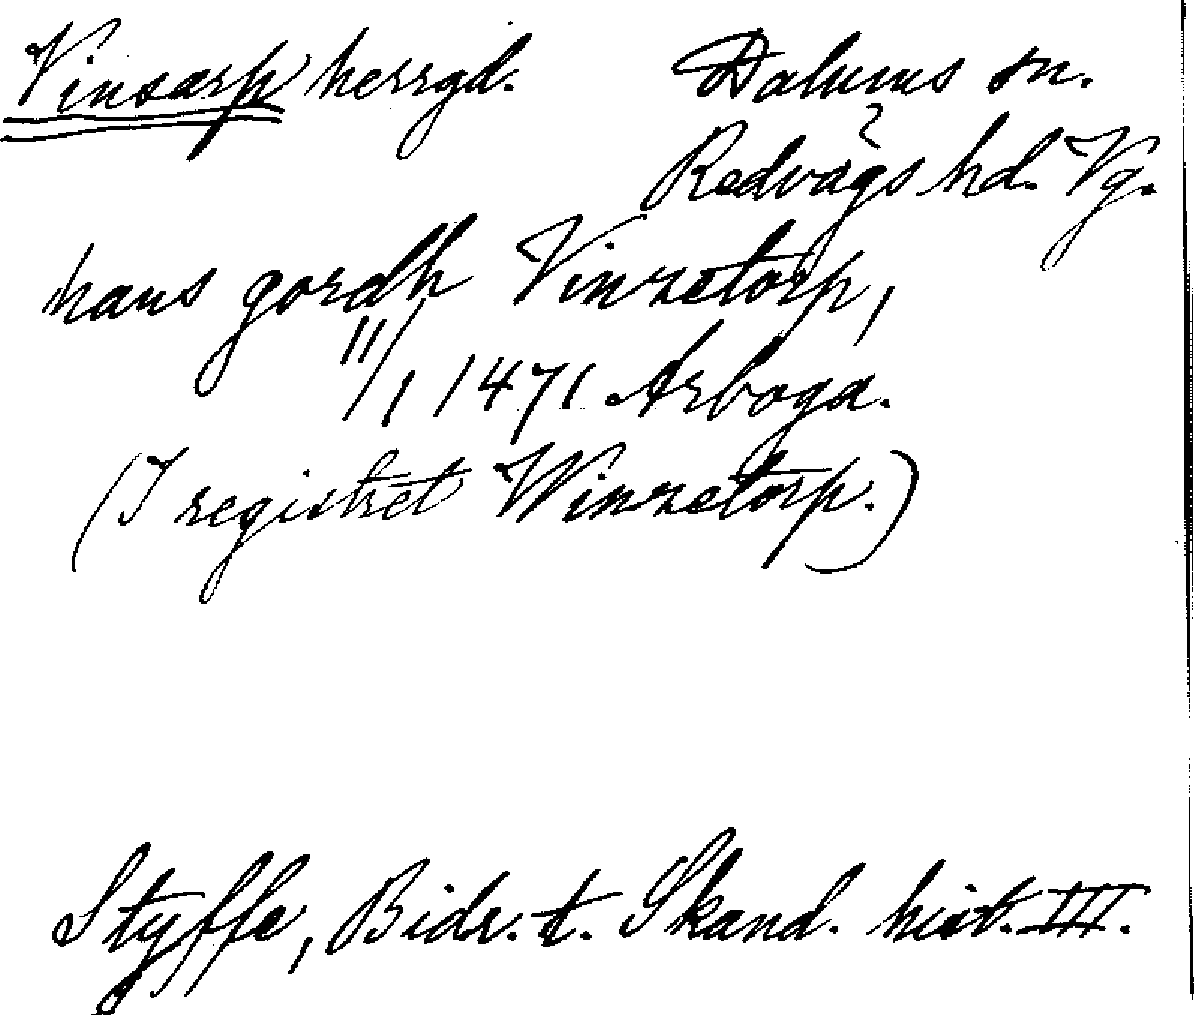 Vinsarp herrgd. Dalums sn.
Redvägs hd. Vg.
hans gordh Vinzetorp,
11/1 1471 Arboga.
(I registret Winzetorp.)
Styffe, Bidr. t. Skand. hist. III.